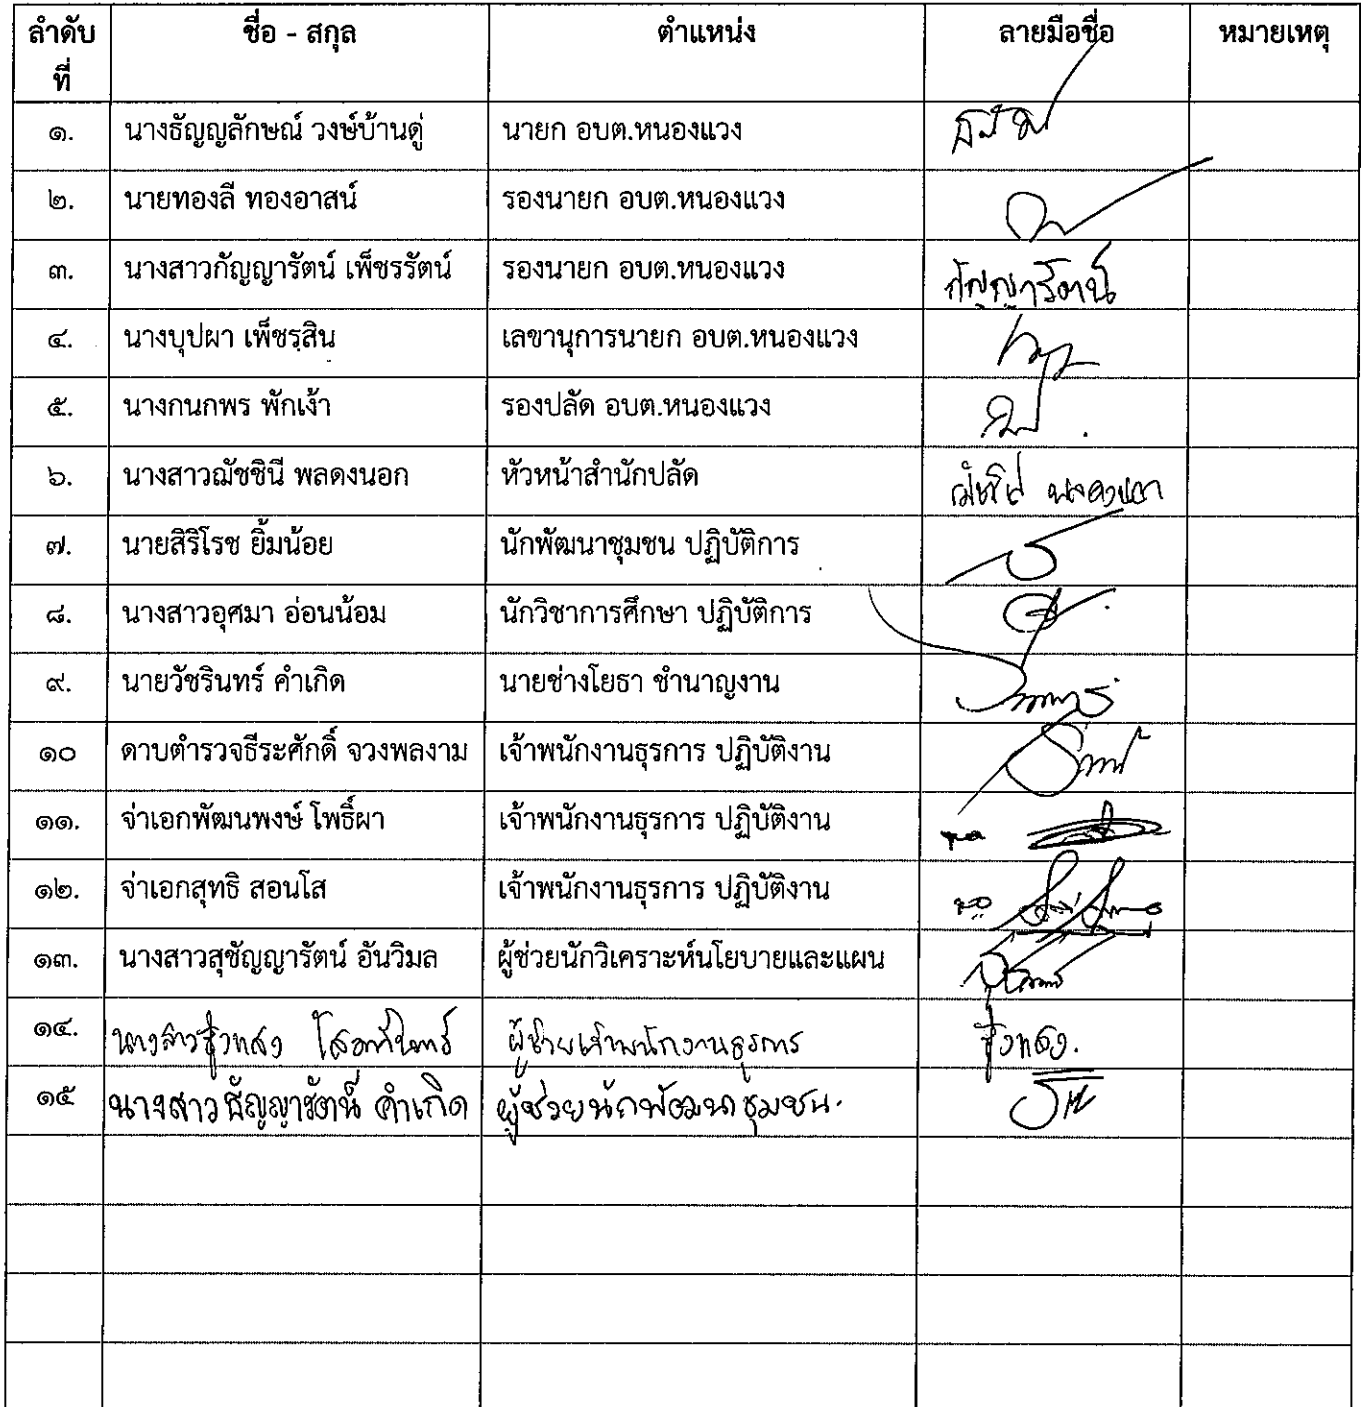 ลำดับ ชื่อ - สกุล ตำแหน่ง ลายมือชื่อ หมายเหตุ
ที่
๑. นางธัญญลักษณ์ วงษ์บ้านดู่ นายก อบต.หนองแวง
๒. นายทองลี ทองอาสน์ รองนายก อบต.หนองแวง
๓. นางสาวกัญญารัตน์ เพ็ชรรัตน์ รองนายก อบต.หนองแวง กัญญารัตน์
๔. นางบุปผา เพ็ชรสิน เลขานุการนายก อบต.หนองแวง
๕. นางกนกพร พักเง้า รองปลัด อบต.หนองแวง
๖. นางสาวณัชชินี พลดงนอก หัวหน้าสำนักปลัด
๗. นายสิริโรช ยิ้มน้อย นักพัฒนาชุมชน ปฏิบัติการ
๘. นางสาวอุศมา อ่อนน้อม นักวิชาการศึกษา ปฏิบัติการ
๙. นายวัชรินทร์ คำเกิด นายช่างโยธา ชำนาญงาน
๑๐ ดาบตำรวจธีระศักดิ์ จวงพลงาม เจ้าพนักงานธุรการ ปฏิบัติงาน
๑๑. จ่าเอกพัฒนพงษ์ โพธิ์ผา เจ้าพนักงานธุรการ ปฏิบัติงาน
๑๒. จ่าเอกสุทธิ สอนโส เจ้าพนักงานธุรการ ปฏิบัติงาน
๑๓. นางสาวสุชัญญารัตน์ อันวิมล ผู้ช่วยนักวิเคราะห์นโยบายและแผน
๑๔. นางสาวรุ่งแสง ผู้ช่วยเจ้าพนักงานธุรการ รุ่งแสง.
๑๕ นางสาวธัญญารัตน์ คำเกิด ผู้ช่วยนักพัฒนาชุมชน.